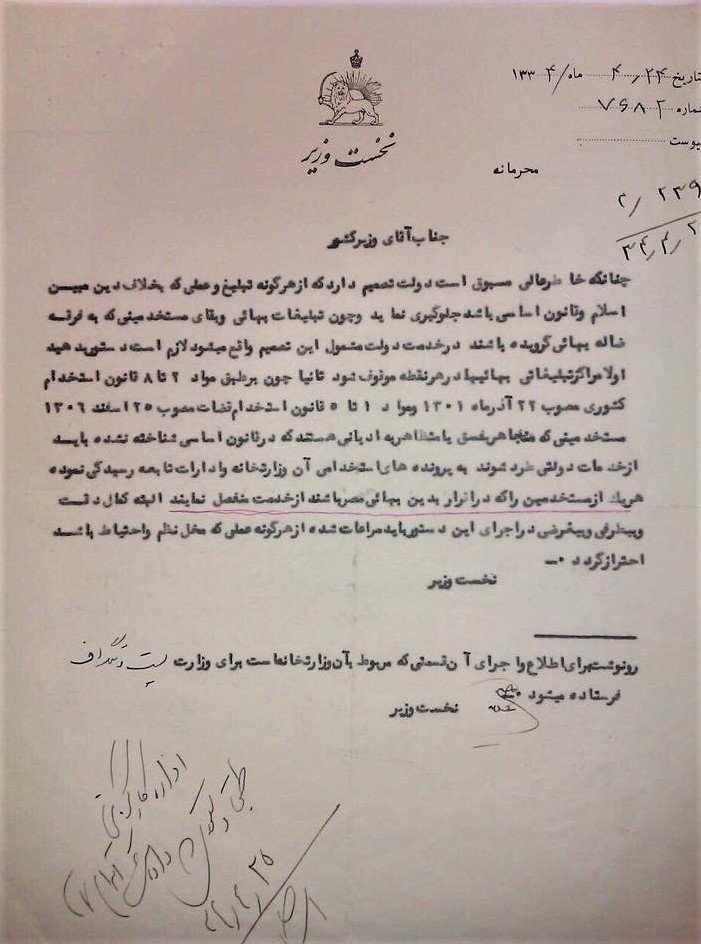 تاریخ ۲۴ر۴ ماه ۱۳۳۴/۴
شماره ۷۶۸۲
پیوست
نخست وزیر
محرمانه
۲۳۹
جناب آقای وزیر کشور
چنانکه خاطر عالی مسبوق است دولت تصمیم دارد که از هر گونه تبلیغ و عملی که بخلاف دین مبین
اسلام وقانون اساسی باشد جلوگیری نماید وچون تبلیغات بهائی وبقای مستخدمینی که به فرقه
ضاله بهائی گرویده باشند درخدمت دولت مشمول این تصمیم واقع میشود لازم است دستور دهید
اولا مراکز تبلیغاتی بهائیها درهر نقطه موقوف شود ثانیا چون برطبق مواد ۲ تا ۸ قانون استخدام
کشوری مصوب ۲۲ آذر ماه ۱۳۰۱ ومواد ۱ تا ۵ قانون استخدام قضات مصوب ۲۵ اسفند ۱۳۰۶
مستخدمینی که متجاهر بفسق یا متظاهر به ادیانی هستند که درقانون اساسی شناخته نشده باید
ازخدمات دولتی طرد شوند به پرونده های استخدامی آن وزارتخانه وادارات تابعه رسیدگی نموده
هریك از مستخدمین راکه دراقرار بدین بهائی مصر باشند ازخدمت منفصل نمایند البته کمال دقت
وبیطرفی وبیغرضی دراجرای این دستور باید مراعات شده ازهرگونه عملی که مخل نظم واحتیاط باشد
احتراز گردد ۰ـ
نخست وزیر
رونوشت برای اطلاع واجرای آن قسمتی که مربوط بآن وزارتخانه است برای وزارت پست و تلگراف
فرستاده میشود ۰ـ
نخست وزیر
اداره کارگزینی